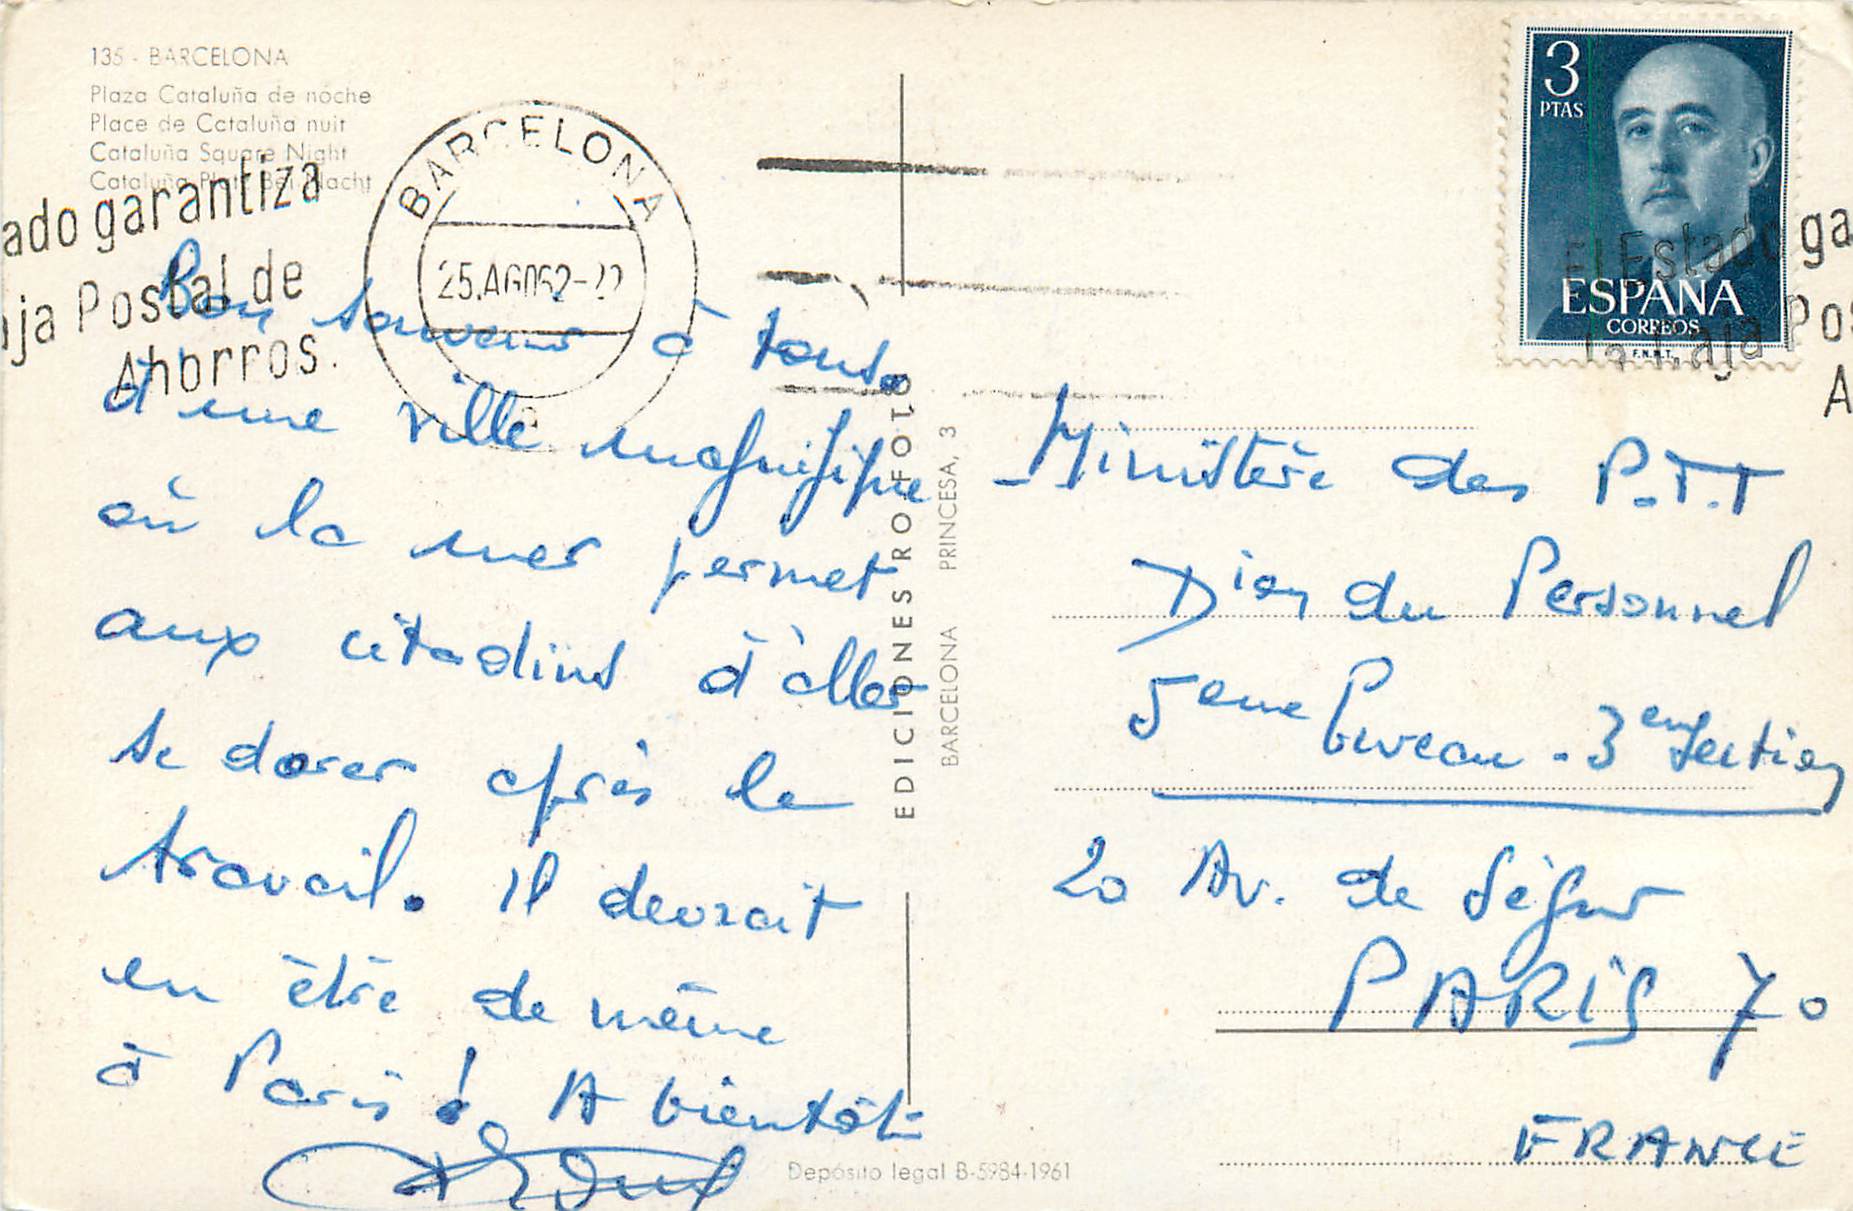 135 - BARCELONA
Plaza Cataluña de noche
Place de Cataluña nuit
Cataluña Square Night
Cataluña Platz Bei Nacht
ado garantiza
aja Postal de
Ahorros.
BARCELONA
25.AGO62-22
3
PTAS
ESPAÑA
CORREOS
F.N.M.T.
El Estado ga
la Caja Pos
A
Bon souvenir à tous
d'une ville magnifique
où la mer permet
aux citadins d'aller
se dorer après le
travail. Il devrait
en être de même
à Paris ! A bientôt
EDICIONES PRO FOTO
BARCELONA PRINCESA, 3
Ministère des P.T.T
Dion du Personnel
5eme Bureau - 3em Section
20 Av. de Ségur
PARIS 7o
FRANCE
Depósito legal B-5984-1961